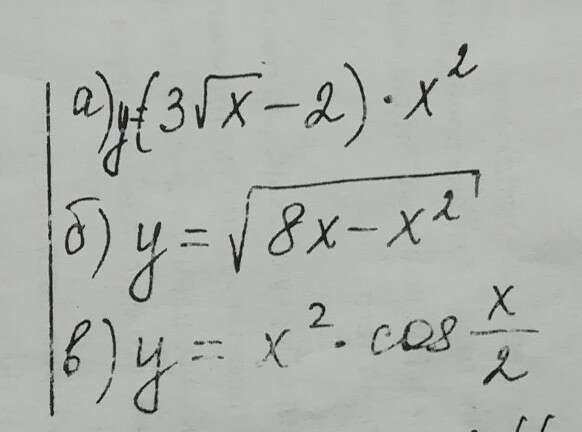 а) y=(3√x-2)·x²
б) y=√(8x-x²)
в) y=x²·cos x/2